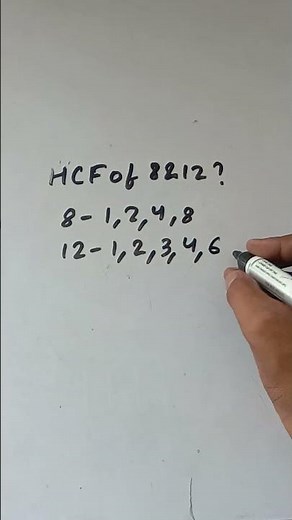 HCF of 8&12?
8-1,2,4,8
12-1,2,3,4,6